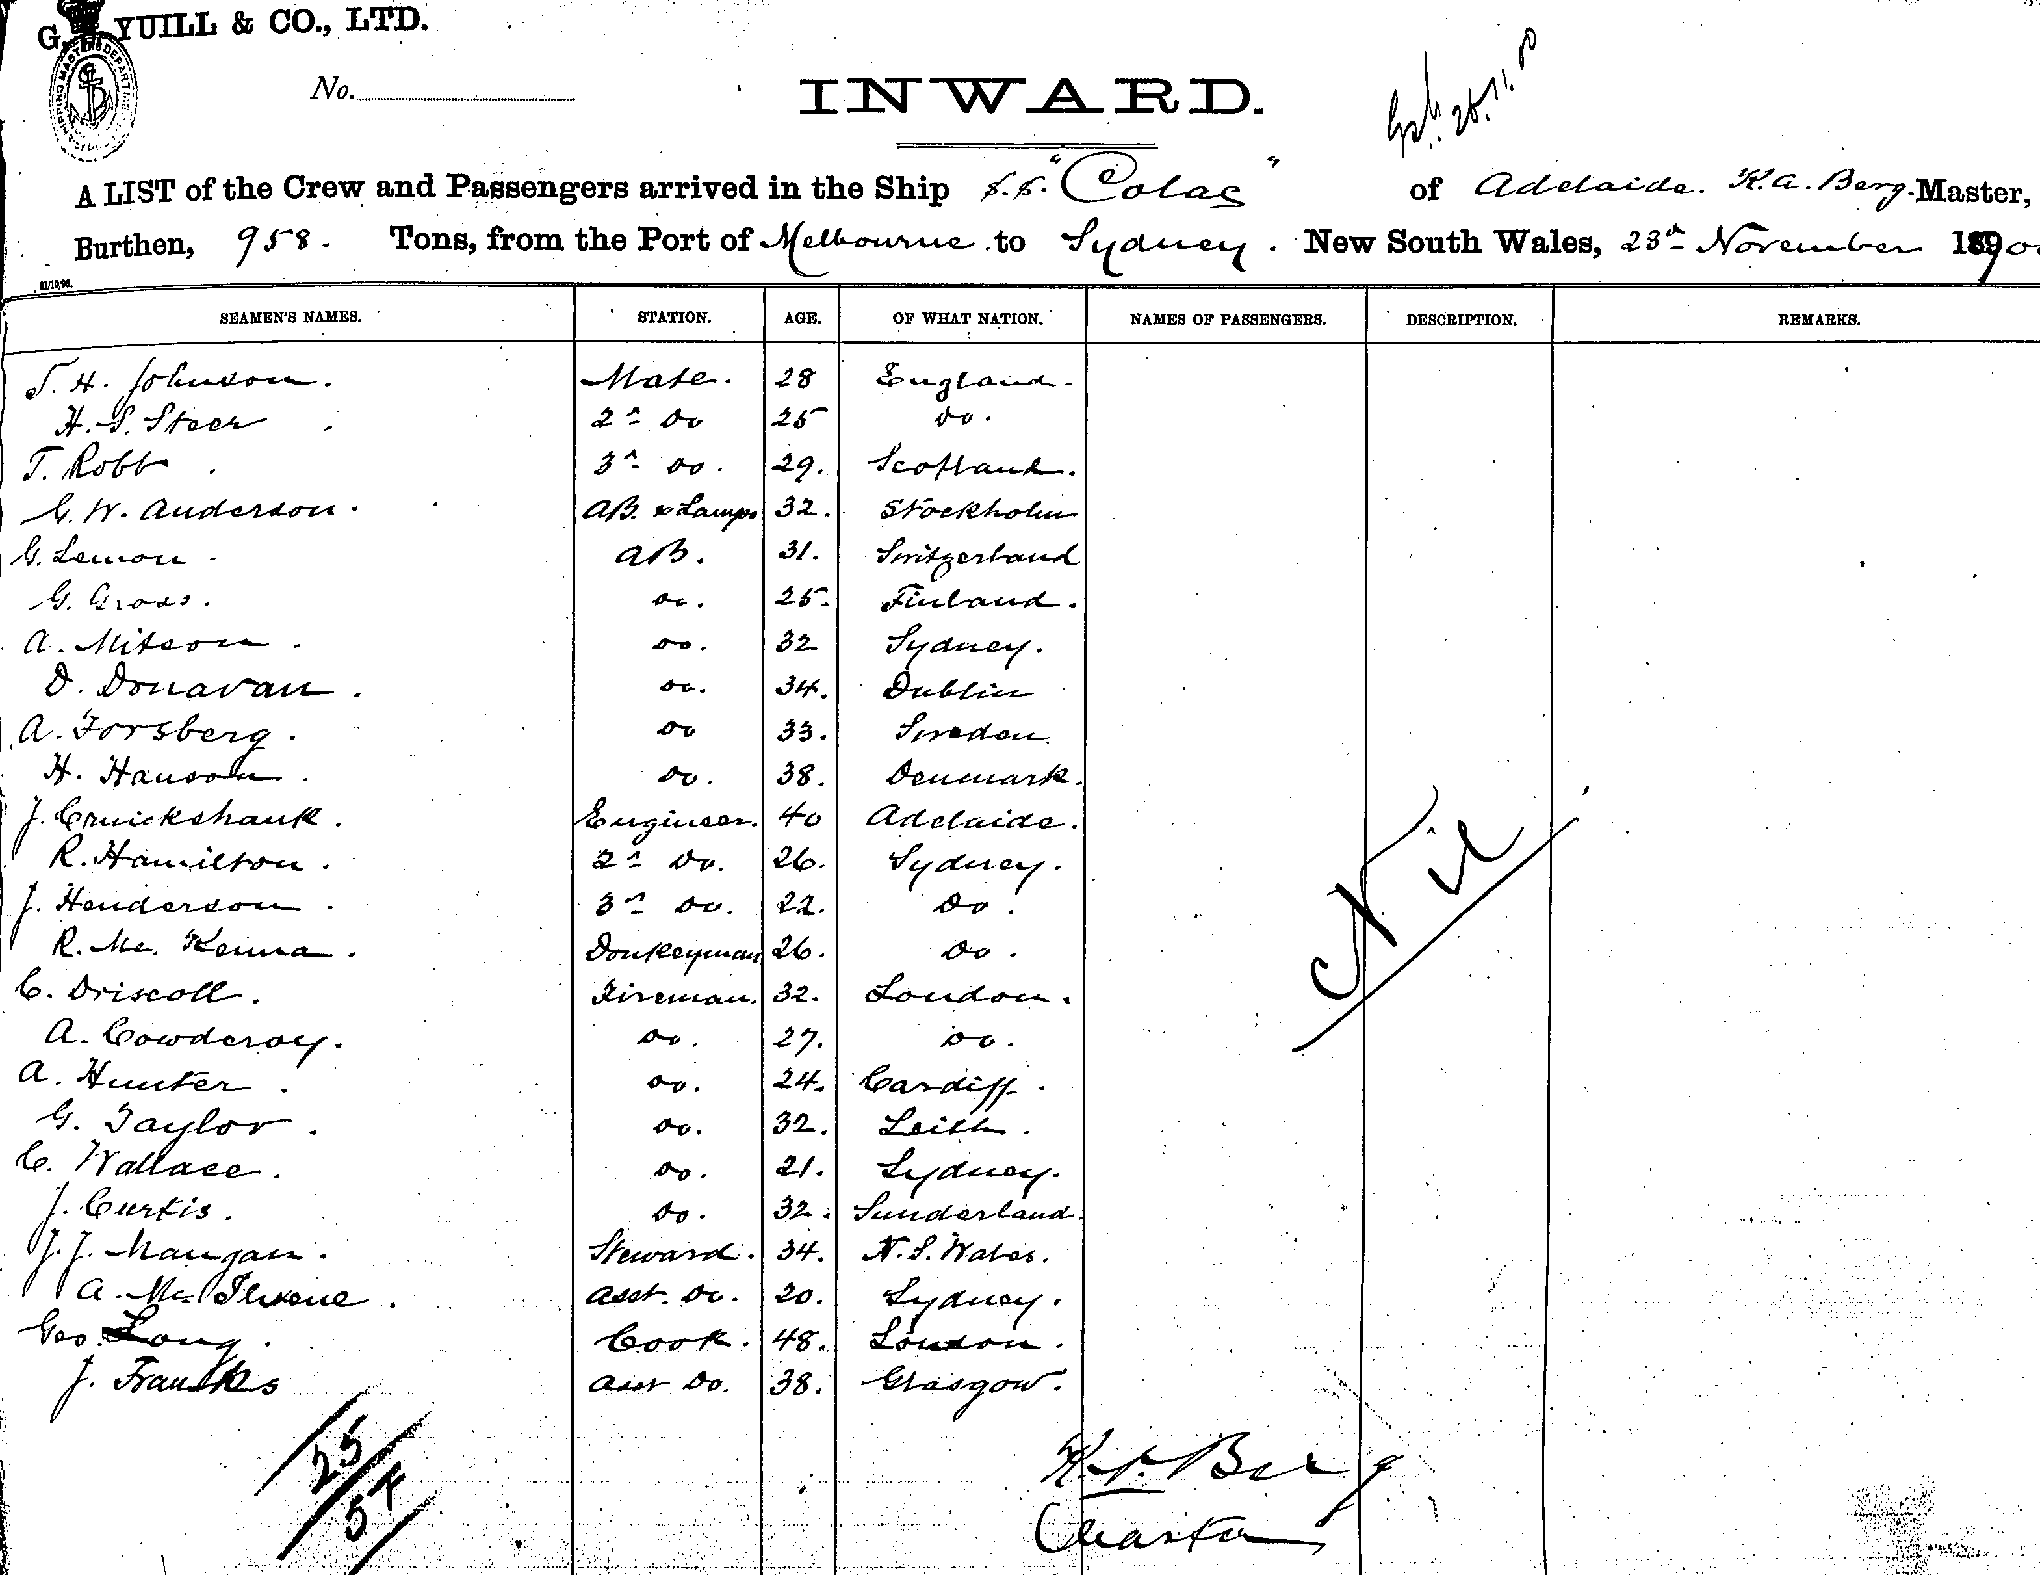 G. YUILL & CO., LTD.
No.
INWARD.
A LIST of the Crew and Passengers arrived in the Ship S.S. "Colac" of Adelaide. K.A. Berg. Master,
Burthen, 958. Tons, from the Port of Melbourne to Sydney. New South Wales, 23rd November 1890
SEAMEN'S NAMES. STATION. AGE. OF WHAT NATION. NAMES OF PASSENGERS. DESCRIPTION. REMARKS.
J. H. Johnson. Mate. 28 England.
H. S. Steer 2nd Do 25 Do.
T. Robb 3rd Do. 29. Scotland.
G. W. Anderson. AB. & Lamps 32. Stockholm
G. Lemon AB. 31. Switzerland
G. Gross. Do. 25. Finland.
A. Mitson. Do. 32 Sydney.
D. Donavan. Do. 34. Dublin
A. Forsberg. Do 33. Sweden.
H. Hanson. Do. 38. Denmark.
J. Cruickshank. Engineer. 40 Adelaide.
R. Hamilton. 2nd Do. 26. Sydney.
J. Henderson 3rd Do. 22. Do.
R. Mc. Kenna. Donkeyman 26. Do.
C. Driscoll. Fireman. 32. London.
A. Cowderoy. Do. 27. Do.
A. Hunter. Do. 24. Cardiff.
G. Taylor. Do. 32. Leith.
C. Wallace. Do. 21. Sydney.
J. Curtis. Do. 32. Sunderland.
J. J. Mangan. Steward. 34. N. S. Wales.
A. Mc Asst. Do. 20. Sydney.
Geo. Long. Cook. 48. London.
J. Franks Asst Do. 38. Glasgow.
Nil
25
54
K. A. Berg
Master